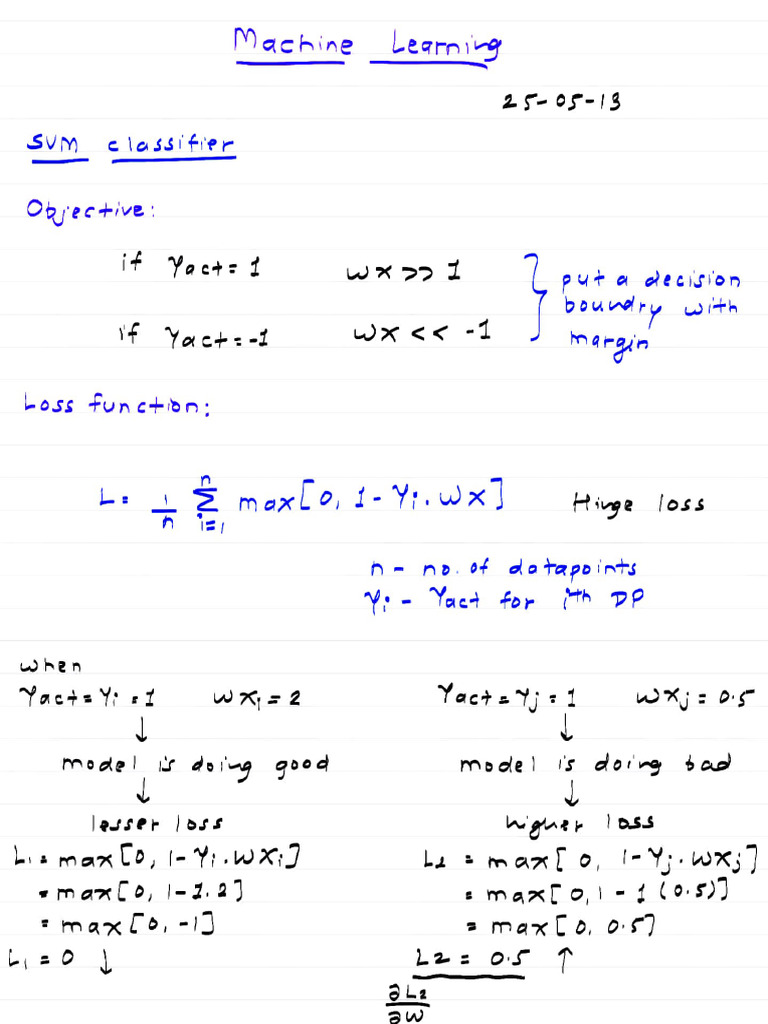 Machine Learning
25-05-13
SVM classifier
Objective:
if Yact = 1 wx >> 1
if Yact = -1 wx << -1
} put a decision
boundry with
margin
Loss function:
L = 1/n Σ_{i=1}^{n} max[0, 1 - Yi . wx] Hinge loss
n - no. of datapoints
Yi - Yact for ith DP
when
Yact = Yi = 1 wxi = 2
↓
model is doing good
↓
lesser loss
L1 = max[0, 1 - Yi . wxi]
= max[0, 1 - 1.2]
= max[0, -1]
L1 = 0 ↓
Yact = Yj = 1 wxj = 0.5
↓
model is doing bad
↓
higher loss
L2 = max[0, 1 - Yj . wxj]
= max[0, 1 - 1 (0.5)]
= max[0, 0.5]
L2 = 0.5 ↑
∂L2/∂w